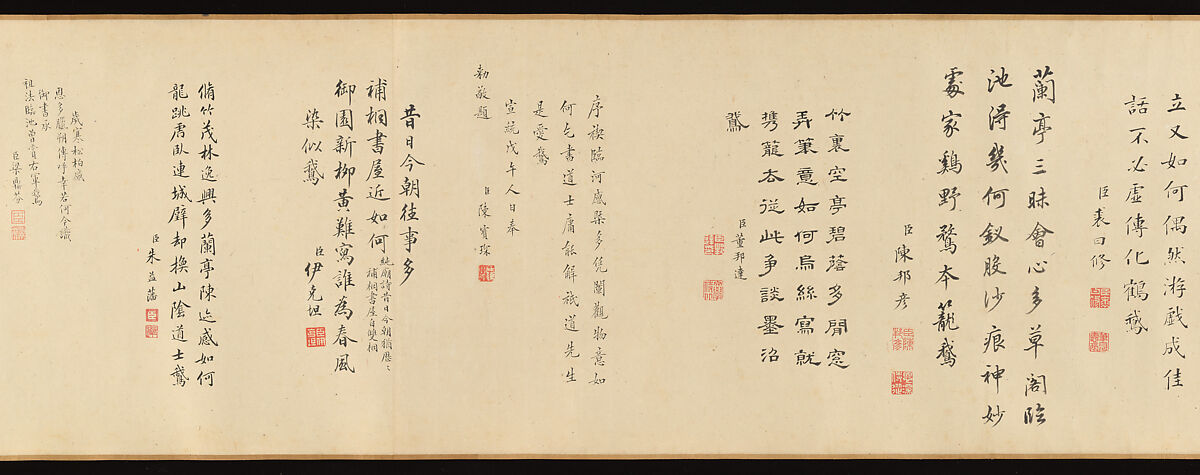 立又如何偶然游戲成佳
話不必虛傳化鶴鵝
臣裘曰修
蘭亭三昧會心多草閣臨
池淂幾何釵股沙痕神妙
處家鷄野鶩本籠鵝
臣陳邦彥
竹裏空亭碧蔭多閒窓
弄筆意如何烏絲寫就
携籠去從此爭談墨沼
鵞
臣董邦達
序禊臨河感槩多凭闌觀物意如
何乞書道士庸能解祇道先生
是愛鵞
宣統戊午年人日奉
勅敬題
臣陳寶琛
昔日今朝徃事多
補桐書屋近如何
純廟詩昔日今朝猶歷〻
補桐書屋自雙桐
御園新柳黃難寫誰為春風
染似鵝
臣伊克坦
脩竹茂林逸興多蘭亭陳迹感如何
龍跳虎臥連城璧却換山陰道士鵞
臣朱益藩
歲寒松柏感
恩多臘朔傳呼幸若何今識
御書承
祖法臨池曾賞右軍鵞
臣梁鼎芬